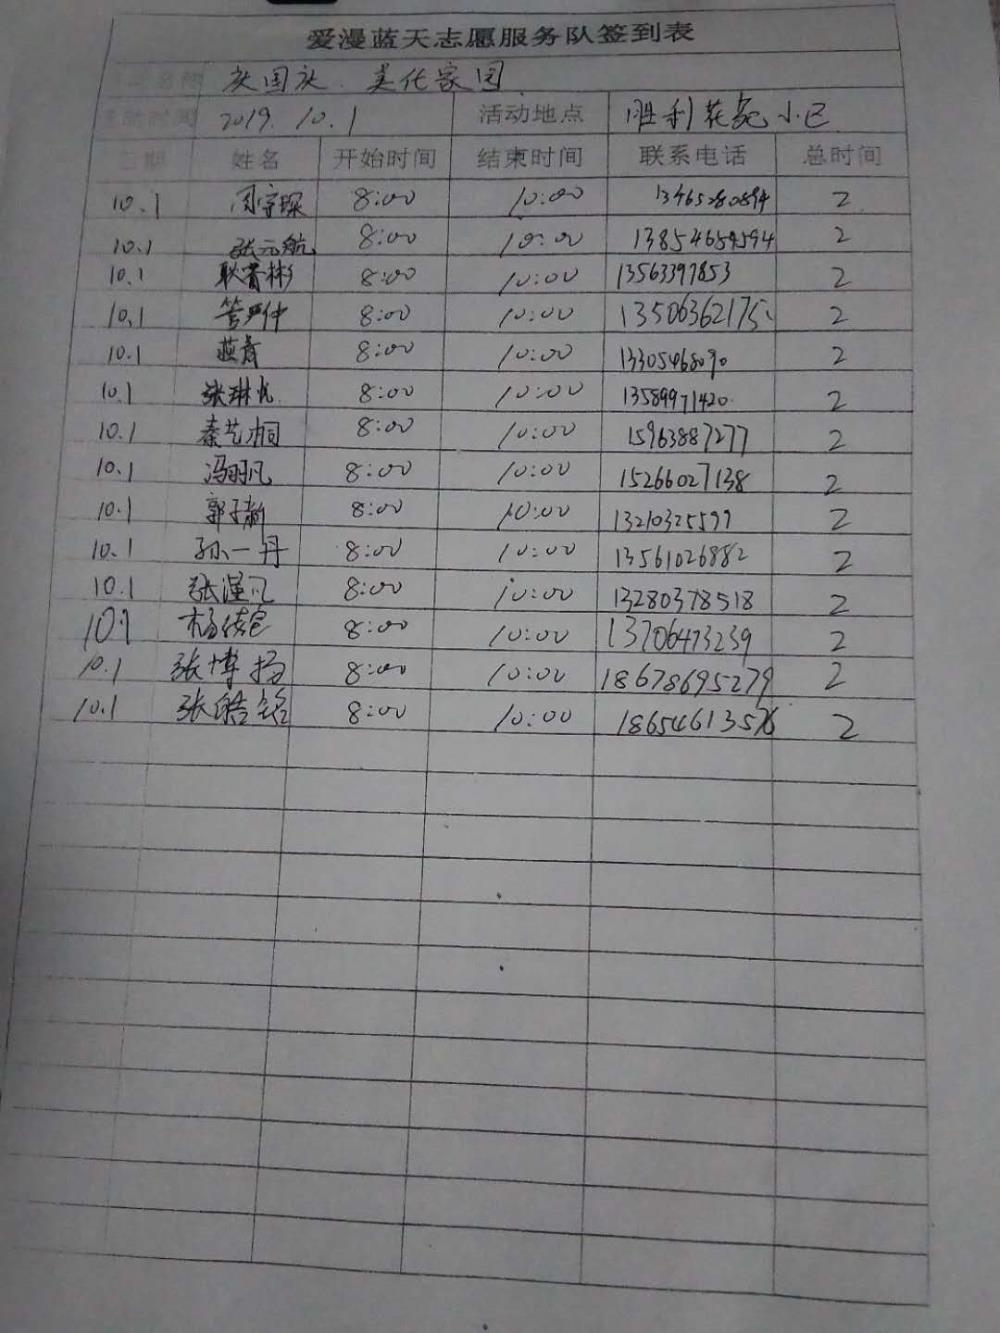 爱漫蓝天志愿服务队签到表
庆国庆 美化家园
2019.10.1 活动地点 胜利花苑小区
日期 姓名 开始时间 结束时间 联系电话 总时间
10.1 8:00 10:00 13465280894 2
10.1 张元航 8:00 10:00 13854659594 2
10.1 8:00 10:00 13563397853 2
10.1 8:00 10:00 2
10.1 8:00 10:00 13305468090 2
10.1 8:00 10:00 13589971420 2
10.1 秦艺桐 8:00 10:00 15963887277 2
10.1 冯羽凡 8:00 10:00 15266027138 2
10.1 8:00 10:00 13210325599 2
10.1 孙一丹 8:00 10:00 13561026882 2
10.1 8:00 10:00 13280378518 2
10.1 8:00 10:00 13706473239 2
10.1 张博扬 8:00 10:00 18678695279 2
10.1 张皓铭 8:00 10:00 18654613576 2